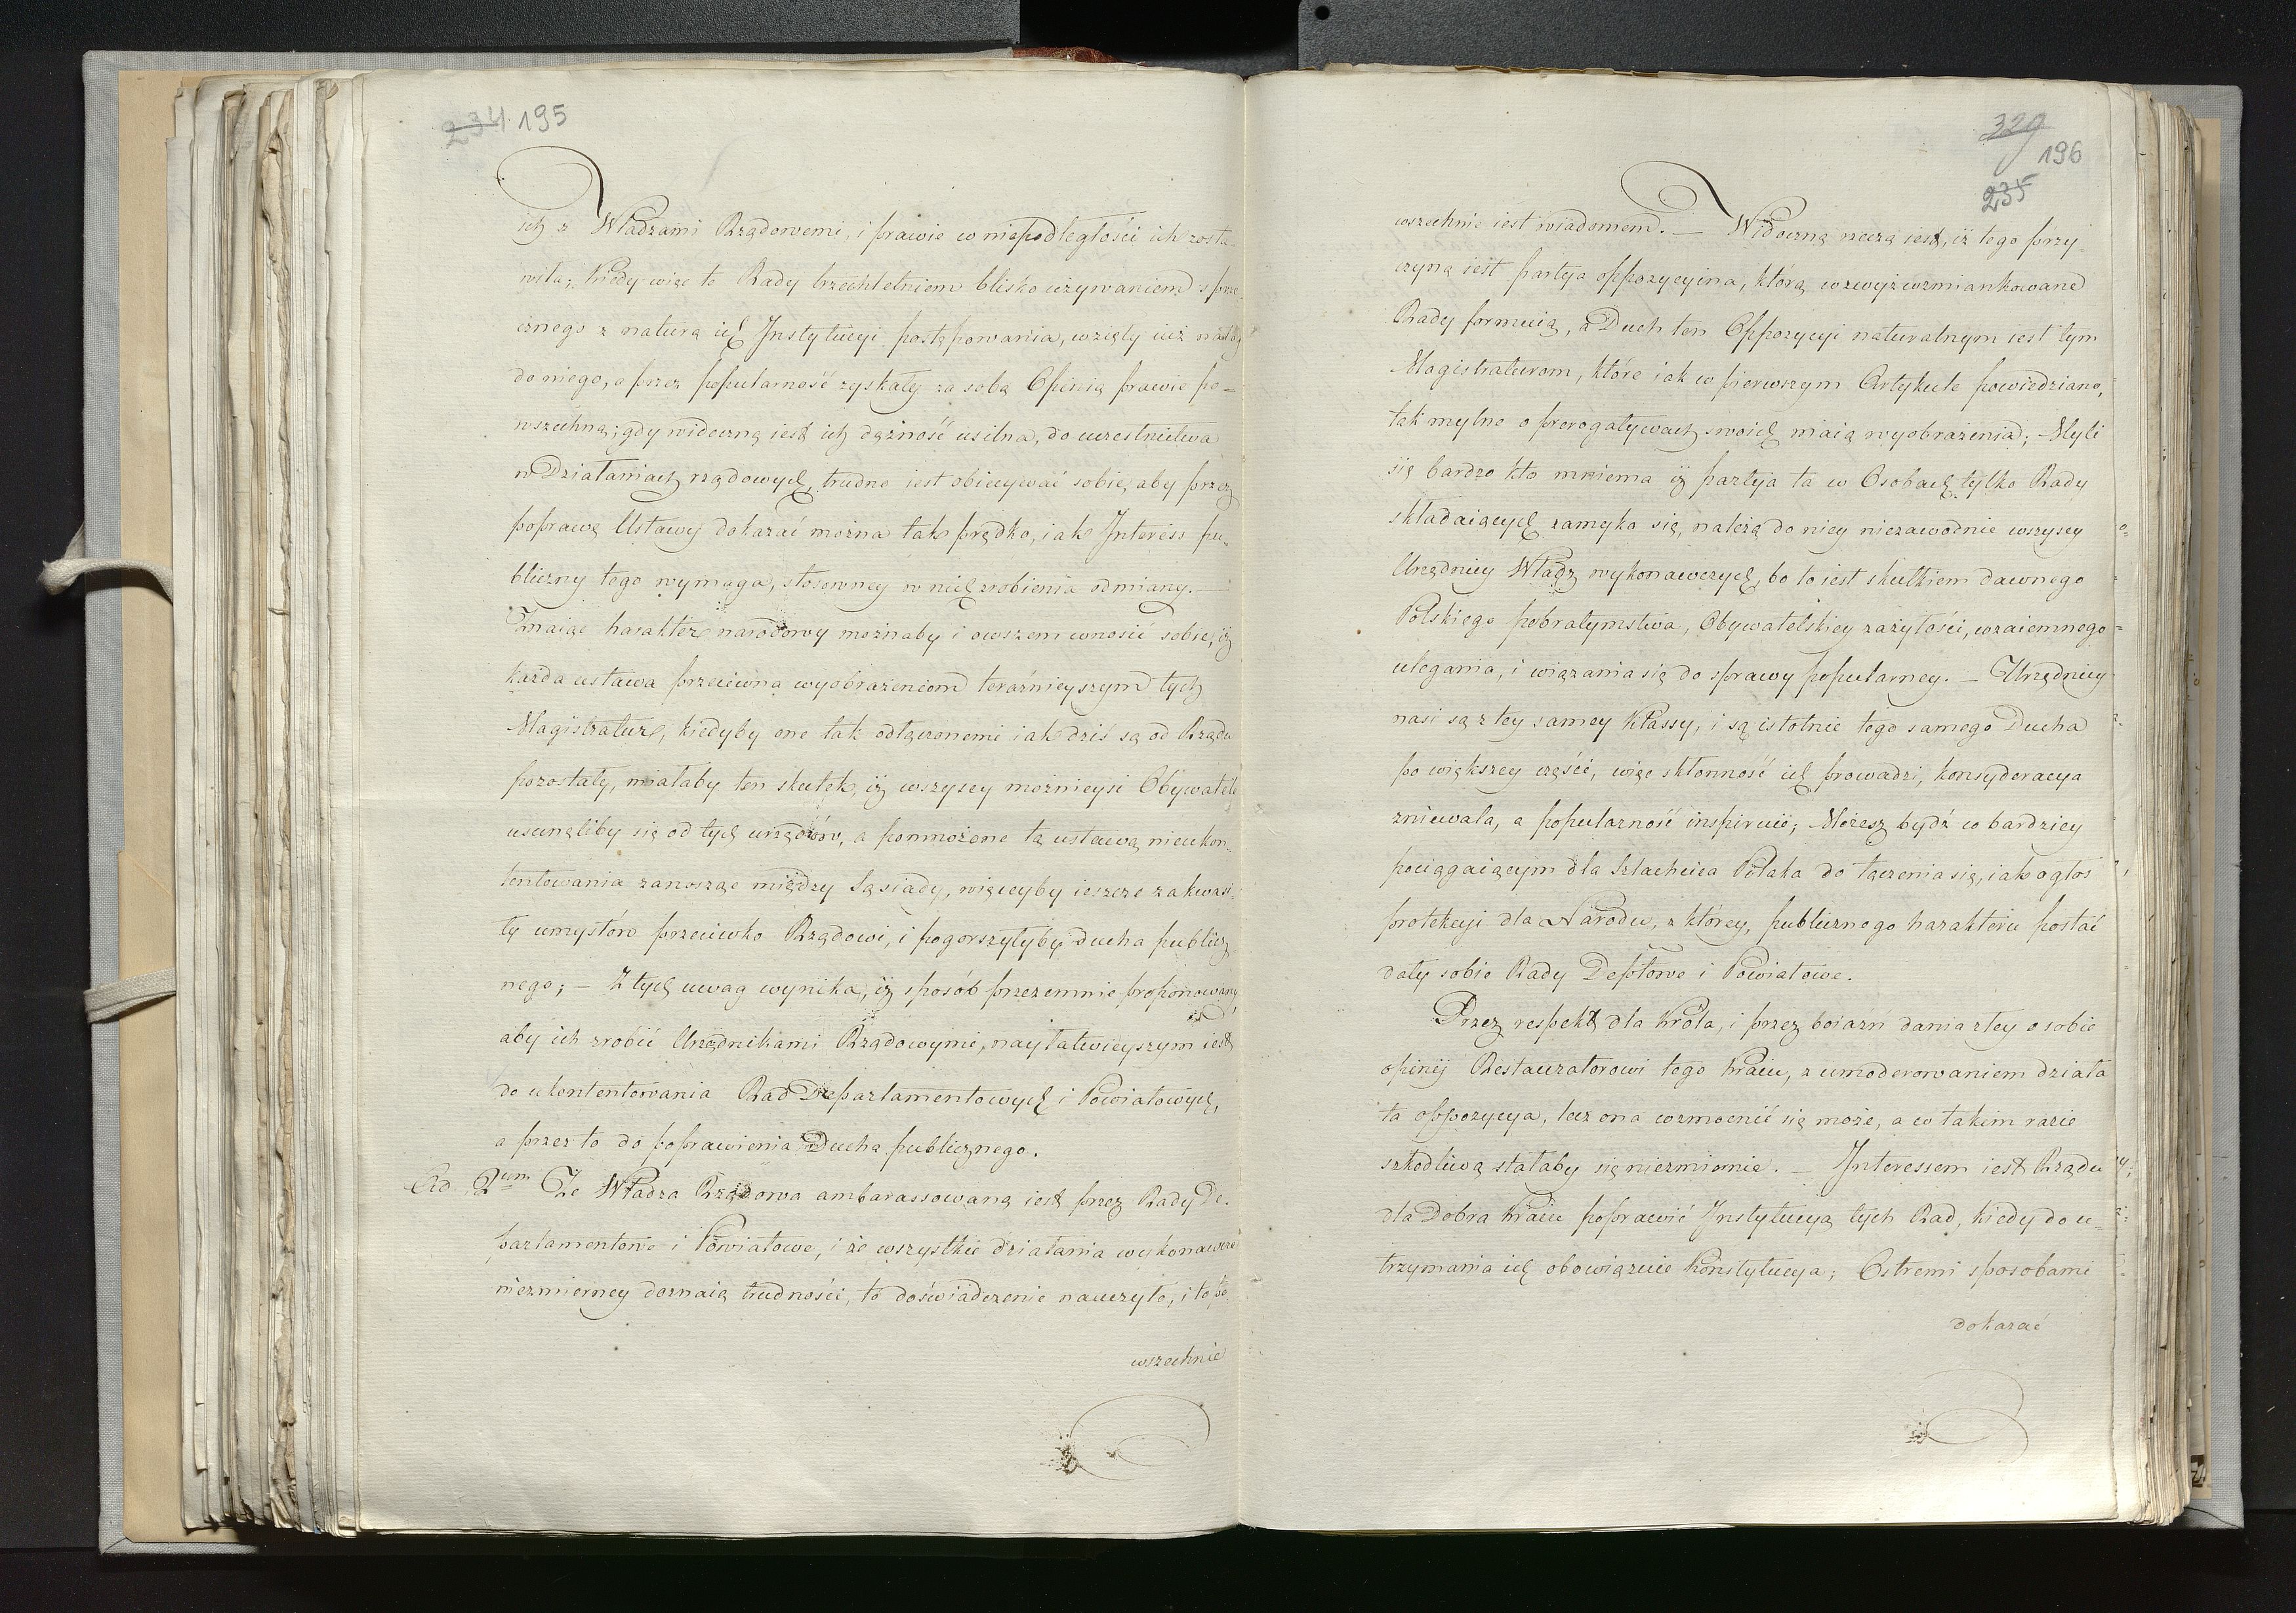 234 195
ich z Władzami Rządowemi, i prawie w niepodległości ich zosta-
wiła; Kiedy więc te Rady trzechletniem blisko używaniem sprze-
cznego z naturą ich Instytucyi postępowania, wzięły iuż nałóg
do niego, a przez popularność zyskały za sobą Opinią prawie po-
wszechną; gdy widoczną iest ich dążność usilna, do uczestnictwa
w Działaniach rządowych, trudno iest obiecywać sobie, aby przez
poprawę Ustawy dokazać można tak prędko, iak Interess pu-
bliczny tego wymaga, stosowney w nich zrobienia odmiany. —
Znaiąc harakter narodowy możnaby i owszem wnosić sobie, iż
każda ustawa przeciwna wyobrażeniom teraźnieyszym tych
Magistratur, kiedyby one tak odłączonemi iak dziś są od Rządu
pozostały, miałaby ten skutek, iż wszyscy możnieysi Obywatele
usunęliby się od tych urzędów, a pomnożone tą ustawą nieukon-
tentowania zanosząc między Sąsiady, więceyby ieszcze zakwasi-
ły umysłów przeciwko Rządowi, i pogorszyłyby ducha publicz-
nego; — Z tych uwag wynika, iż sposób przezemnie proponowany
aby ich zrobić Urzędnikami Rządowymi, nayłatwieyszym iest
do ukontentowania Rad Departamentowych i Powiatowych,
a przez to do poprawienia Ducha publicznego.
Ad 2um Że Władza Rządowa ambarassowaną iest przez Rady De-
partamentowe i Powiatowe, i że wszystkie działania wykonawcze
niezmierney doznaią trudności, to doświadczenie nauczyło, i to po-
wszechnie
329
196
235
wszechnie iest wiadomem. — Widoczną rzeczą iest, iż tego przy
czyną iest partya oppozycyina, którą wzwyż wzmiankowane
Rady formuią, a Duch ten Oppozycyi naturalnym iest tym
Magistraturom, które iak w pierwszym Artykule powiedziano,
tak mylne o prerogatywach swoich maią wyobrażenia; Myli
się bardzo kto mniema iż partyja ta w Osobach tylko Rady
składaiących zamyka się, należą do niey niezawodnie wszyscy
Urzędnicy Władz wykonawczych, bo to iest skutkiem dawnego
Polskiego pobratymstwa, Obywatelskiey zażyłości, wzaiemnego
ulegania, i wiązania się do sprawy popularney. — Urzędnicy
nasi są z tey samey Klassy, i są istotnie tego samego Ducha
po większey części, więc skłonność ich prowadzi, konsyderacya
zniewala, a popularność inspiruie; Możesz bydź co bardziey
pociągaiącym dla Szlachcica Polaka do łączenia się, iak ogłos
protekcyi dla Narodu, z którey, publicznego harakteru postać
dały sobie Rady Deptowe i Powiatowe.
Przez respekt dla Króla, i przez boiaźń dania złey o sobie
opinij Restauratorowi tego Kraiu, z umoderowaniem działa
ta oppozycya, lecz ona wzmocnić się może, a w takim razie
szkodliwą stałaby się niezmiernie. — Interessem iest Rządu
dla Dobra Kraiu poprawić Instytucyą tych Rad, kiedy do u-
trzymania ich obowiązuie Konstytucya; Ostremi sposobami
dokazać